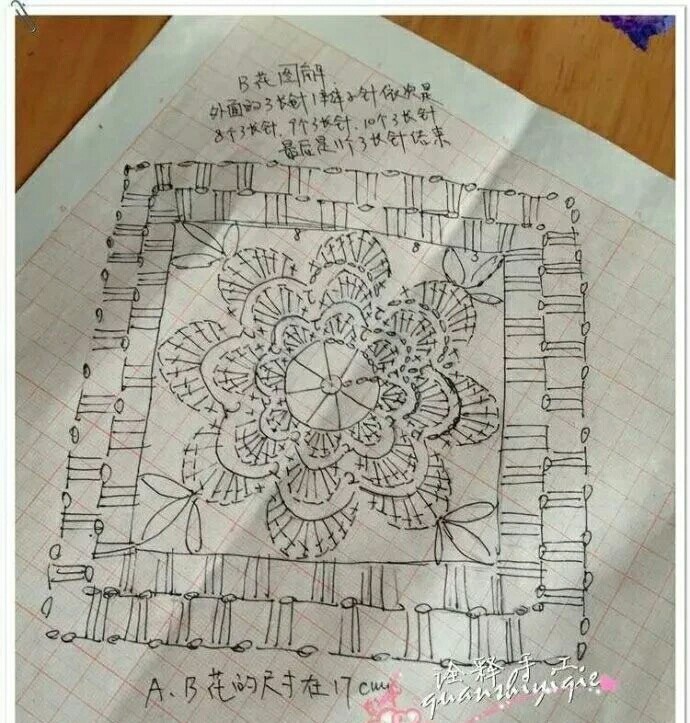 B花图解
外面的3长针1锁针依次是
8个3长针、9个3长针、10个3长针
最后是11个3长针结束
8
8
3
A、B花的尺寸在17cm
诠释手工
quanshiyiqie